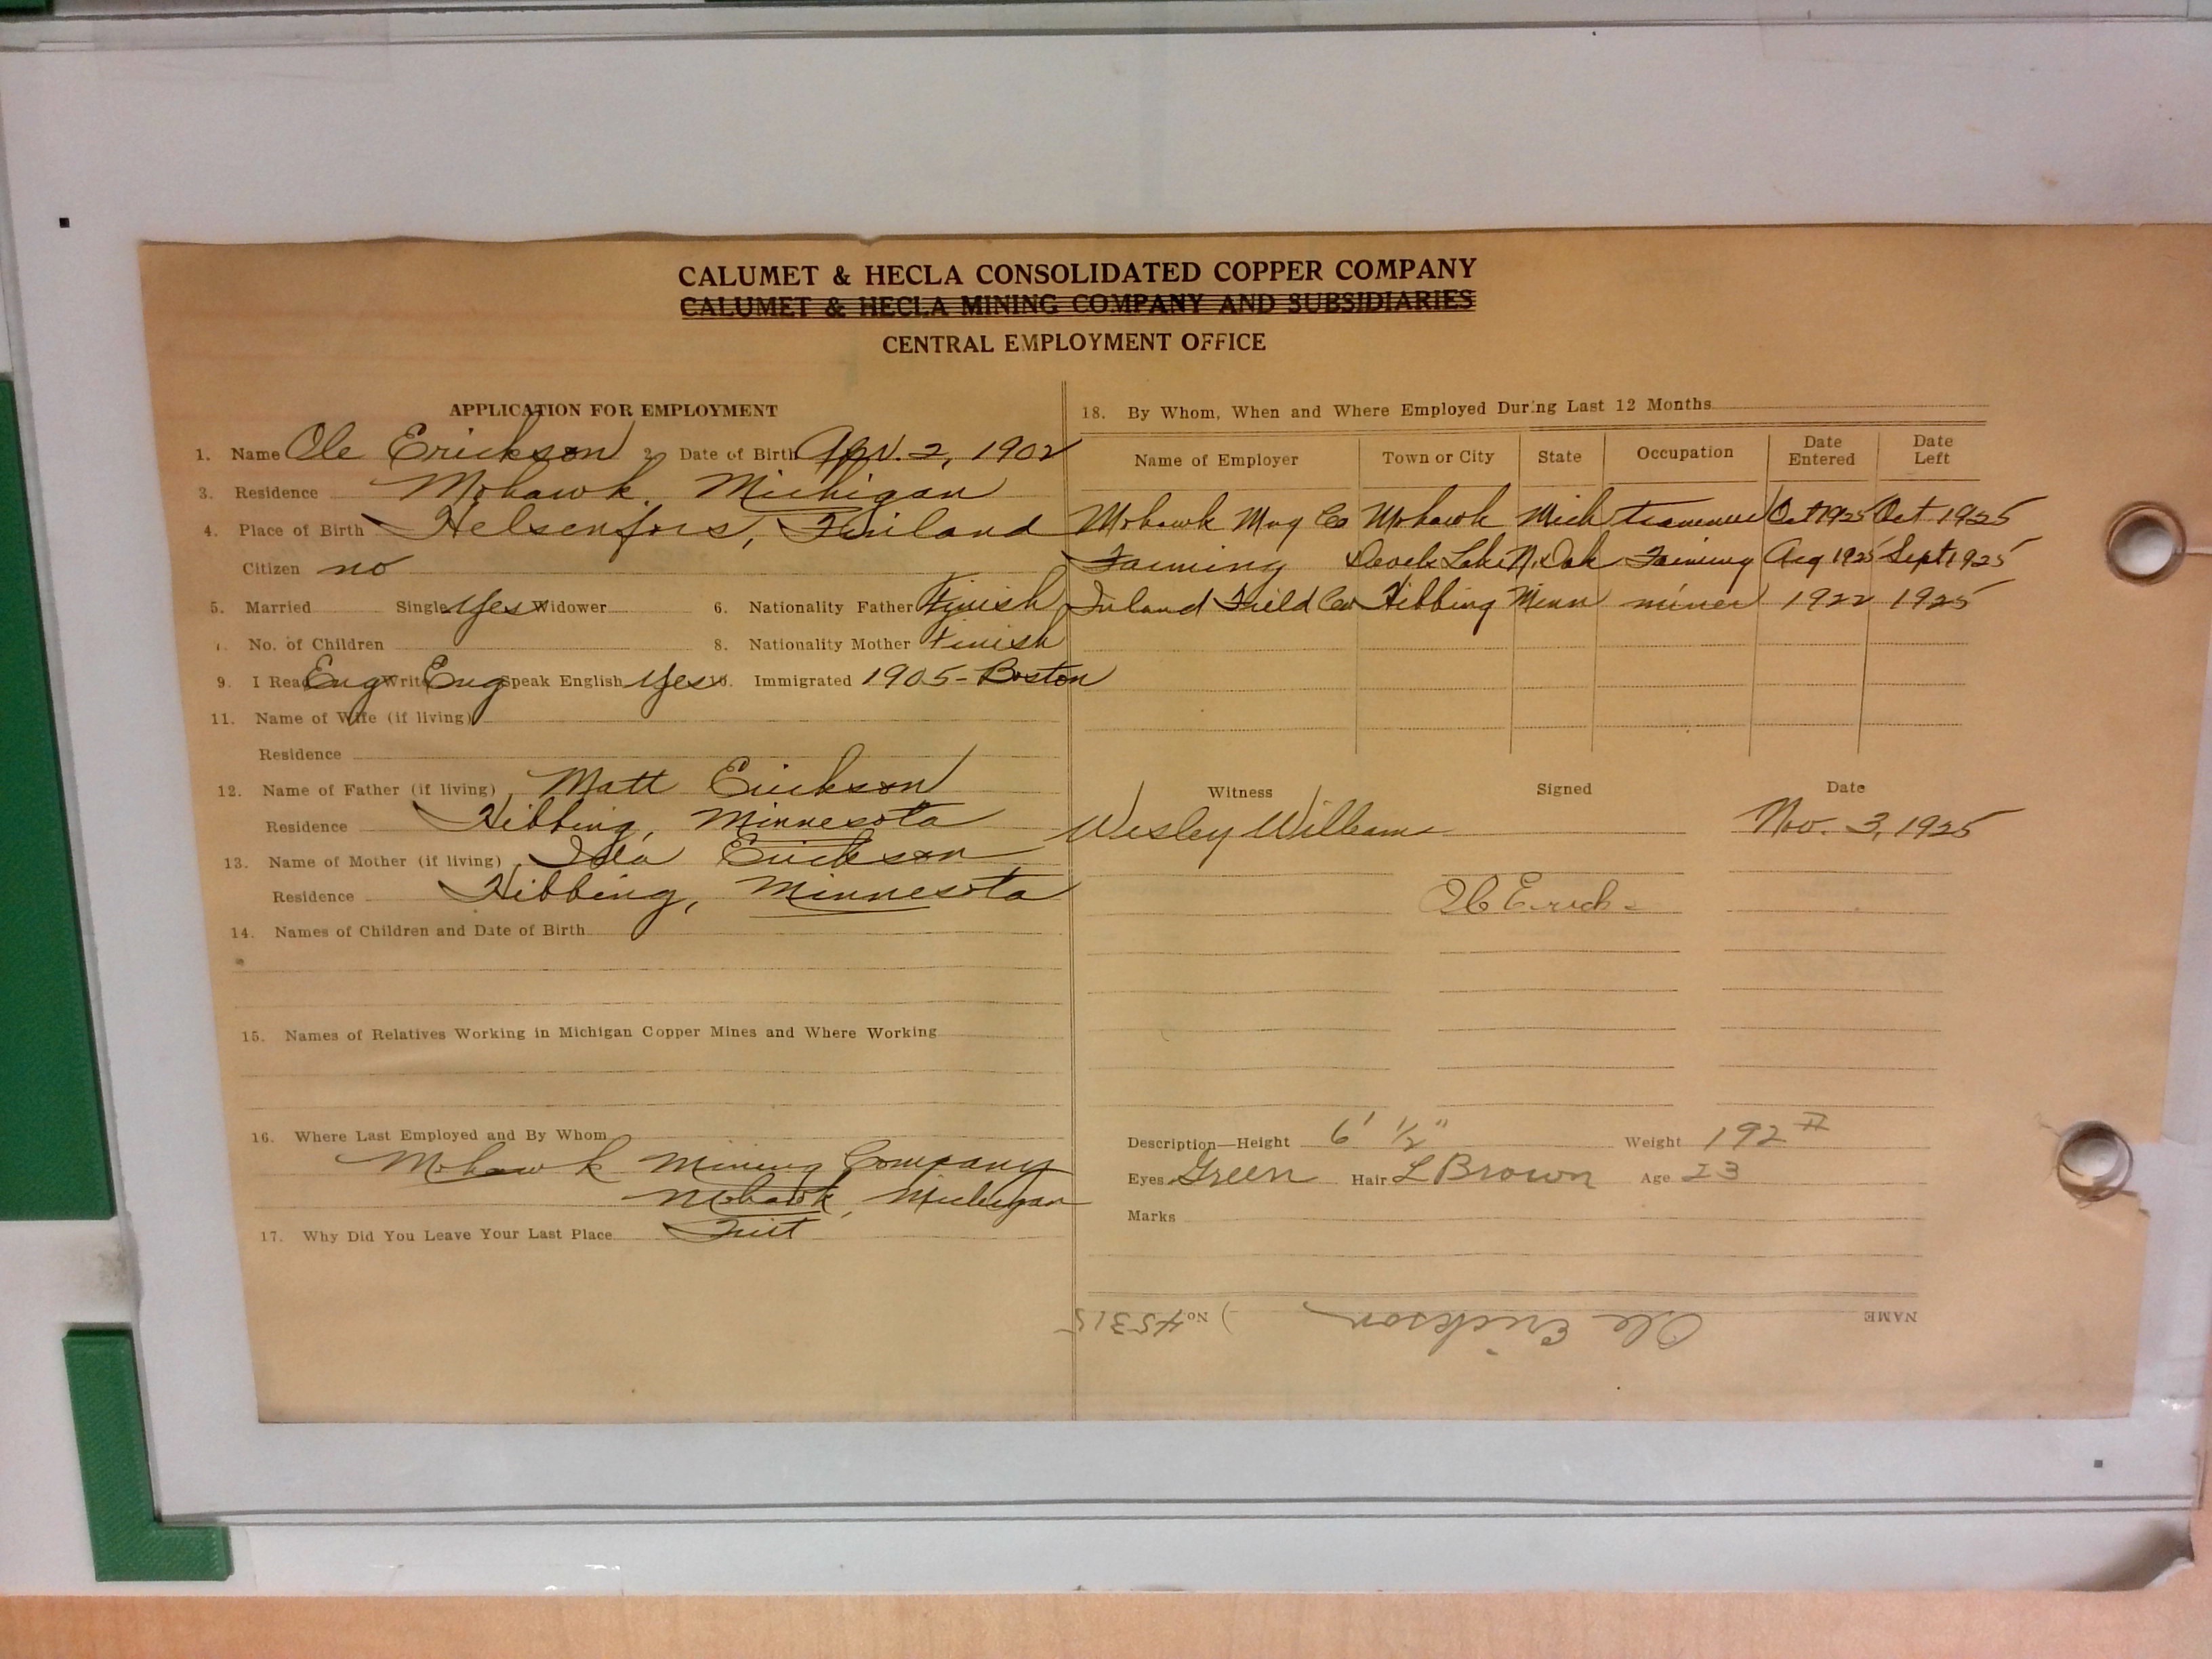 CALUMET & HECLA CONSOLIDATED COPPER COMPANY
CALUMET & HECLA MINING COMPANY AND SUBSIDIARIES
CENTRAL EMPLOYMENT OFFICE
APPLICATION FOR EMPLOYMENT
1. Name Ole Erickson 2. Date of Birth Apr. 2, 1902
3. Residence Mohawk, Michigan
4. Place of Birth Helsenfors, Finland
Citizen no
5. Married Single yes Widower 6. Nationality Father Finish
No. of Children 8. Nationality Mother Finish
9. I Read Eng Write Eng Speak English Yes 10. Immigrated 1905 - Boston
11. Name of Wife (if living)
Residence
12. Name of Father (if living) Matt Erickson
Residence Hibbing, Minnesota
13. Name of Mother (if living) Ida Erickson
Residence Hibbing, Minnesota
14. Names of Children and Date of Birth
15. Names of Relatives Working in Michigan Copper Mines and Where Working
16. Where Last Employed and By Whom
Mohawk Mining Company
Mohawk, Michigan
17. Why Did You Leave Your Last Place Quit
18. By Whom, When and Where Employed During Last 12 Months
Name of Employer Town or City State Occupation Date Entered Date Left
Mohawk Mng Co Mohawk Mich trammer Oct 1925 Oct 1925
Farming Devels Lake N. Dak Farming Aug 1925 Sept 1925
Inland Co Hibbing Minn miner 1922 1925
Witness Signed Date
Wesley Williams Nov. 3, 1925
Ole
Description—Height 6' ½" Weight 192 #
Eyes Green Hair L Brown Age 23
Marks
NAME Ole Erickson No. 45315